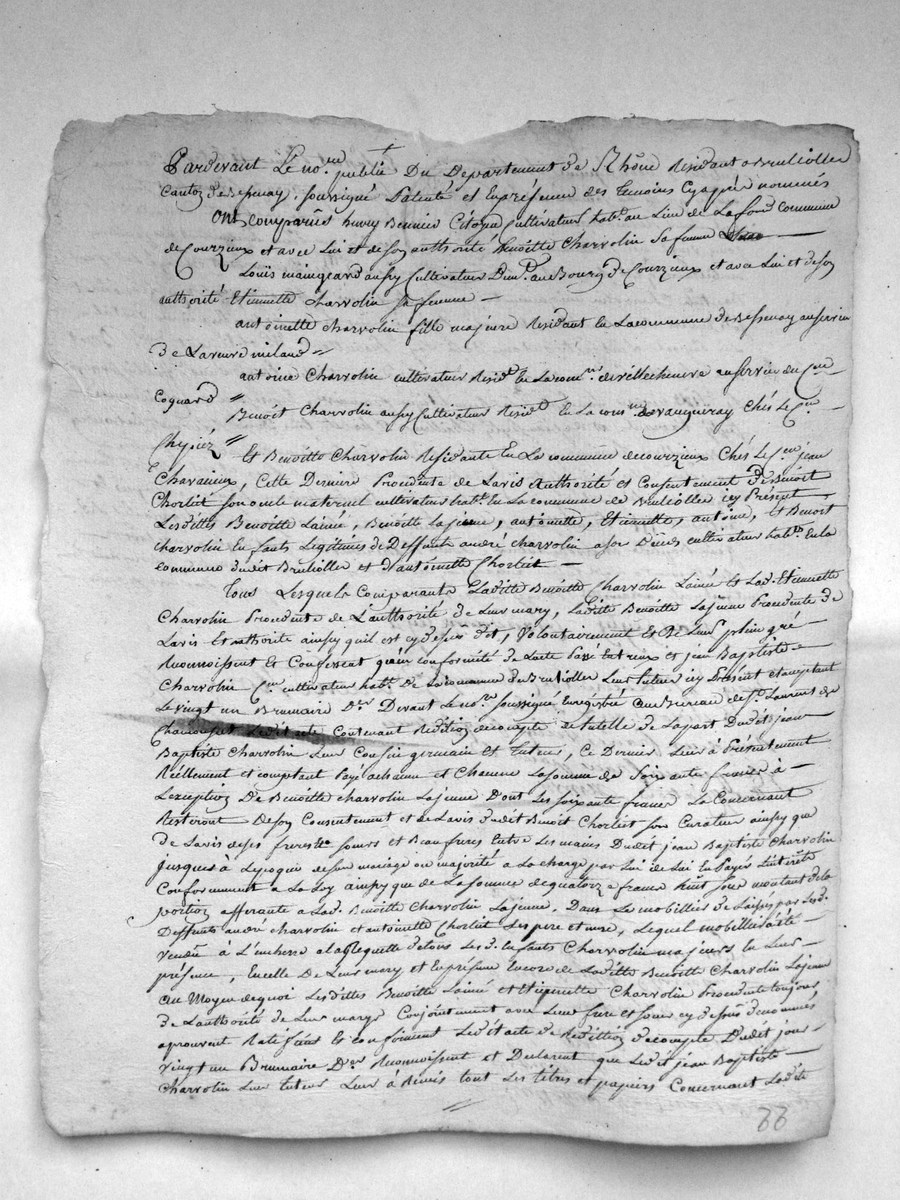 Pardevant Le no.re publié Du Departement de Rhône Residant a Brulioller
Canton de Bessenay, soussigné Patenté et en présence des Temoins Cy apprès nommés
Ont Comparûs Bennier Citoyen Cultivateur habt. au Lieu de Lafond Commune
de Courzieux et avec Lui et de son authorité Benoitte Charvolin sa femme
Loüis maingeard aussy Cultivateur Dem.t au Bourg de Courzieux et avec Lui et de son
authorité Etiennette Charvolin sa femme —
antoinette charvolin fille majeure Residant en La commune de Bessenay au service
de
antoine Charvolin cultivateur Resid.t En La com.ne de villechenève au service du C.en
Coquard "
Benoit Charvolin aussy Cultivateur Resid.t En La com.ne de vaugneray Chés Le C.en
"
Et Benoitte Charvolin Residante En La commune de courzieux Chés Le C.en jean
Chavanieux, Cette Derniere Procedente de L'avis Authorité et Consentement de Benoit
Chorliet son oncle maternel cultivateur habt. En La commune de Brulioller icy Présent
Lesdittes Benoitte Lainée, Benoitte Lajeune, antoinette, Etiennette, antoine, et Benoit
charvolin Enfants Legitimes de Deffunts andré charvolin a son Décès cultivateur habt. En la
commune dudit Brulioller et d'antoinette Chorliet —
Tous Lesquels Comparants Laditte Benoitte Charvolin Lainée et Lad. Etiennette
Charvolin Procedente de L'authorité de Leurs mary, Laditte Benoitte Lajeune Procedente de
L'avis et authorité ainsy quil est cy dessus dit, Volontairement Et de Leur plein gré
Reconnoissent et Confessent qu'en conformité de Lacte Passé Entreux et jean Baptiste —
Charvolin C.en cultivateur habt. De La commune de Brulioller Leur tuteur icy Présent et acceptant
Le vingt un Brumaire D.er Devant Le no.re soussigné Enregistré au Bureau de S.t Laurent de
Chamousset Ledit acte Contenant Reddition de compte de tutelle de La part Dudit jean
Baptiste Charvolin Leur Cousin germain et Tuteur, Ce Dernier Leur à Présentement
Réellement et comptant Payé a chacun et Chacune La somme de Soixante francs à
Lexception De Benoitte charvolin Lajeune Dont Les soixante francs La Concernant
Resteront De son Consentement et de L'avis dudit Benoit Chorliet son Curateur ainsy que
de L'avis de ses freres et sœurs et Beaufreres Entre Les mains Dudit jean Baptiste Charvolin
jusques à L'epoque de son mariage ou majorité a La charge par Lui de Lui En Payer L'interêts
Conformement a La Loy ainsy que de La somme de quatorze francs huit sous montant de la
portion afferante a Lad. Benoitte Charvolin Lajeune, Dans Le mobillier de Laissés par Lesd.
Deffunts andré charvolin et antoinette Chorliet Ses pere et mere, Lequel mobillier à été —
vendu à L'enchere a la Requette de tous Lesd. Enfants Charvolin majeurs En Leur —
présence, En celle De Leurs mary et En présence Encore de Laditte Benoitte Charvolin Lajeune
Au Moyen de quoi Lesdittes Benoitte Lainée et Etiennette Charvolin Procedente toujours
de L'authorité de Leur marys Conjointement avec Leur frere et sœur cy dessus denommés
aprouvent Ratifient et confirment Ledit acte de Reddition de compte Dudit jour
vingt un Brumaire D.er Reconnoissent et Declarent que Ledit jean Baptiste —
Charvolin Leur tuteur Leur à Remis tout Les titres et papiers Concernant Laditte
33